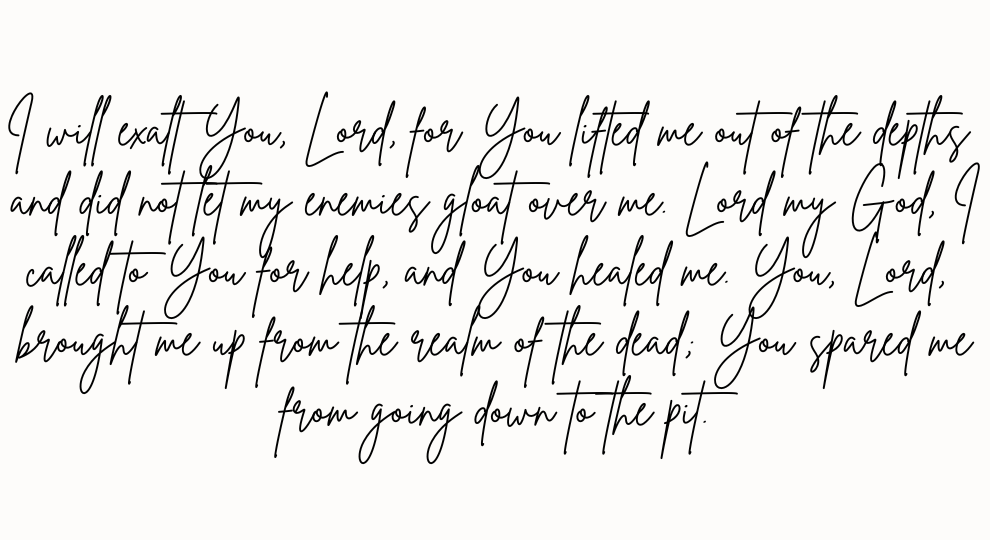 I will exalt You, Lord, for You lifted me out of the depths
and did not let my enemies gloat over me. Lord my God, I
called to You for help, and You healed me. You, Lord,
brought me up from the realm of the dead; You spared me
from going down to the pit.